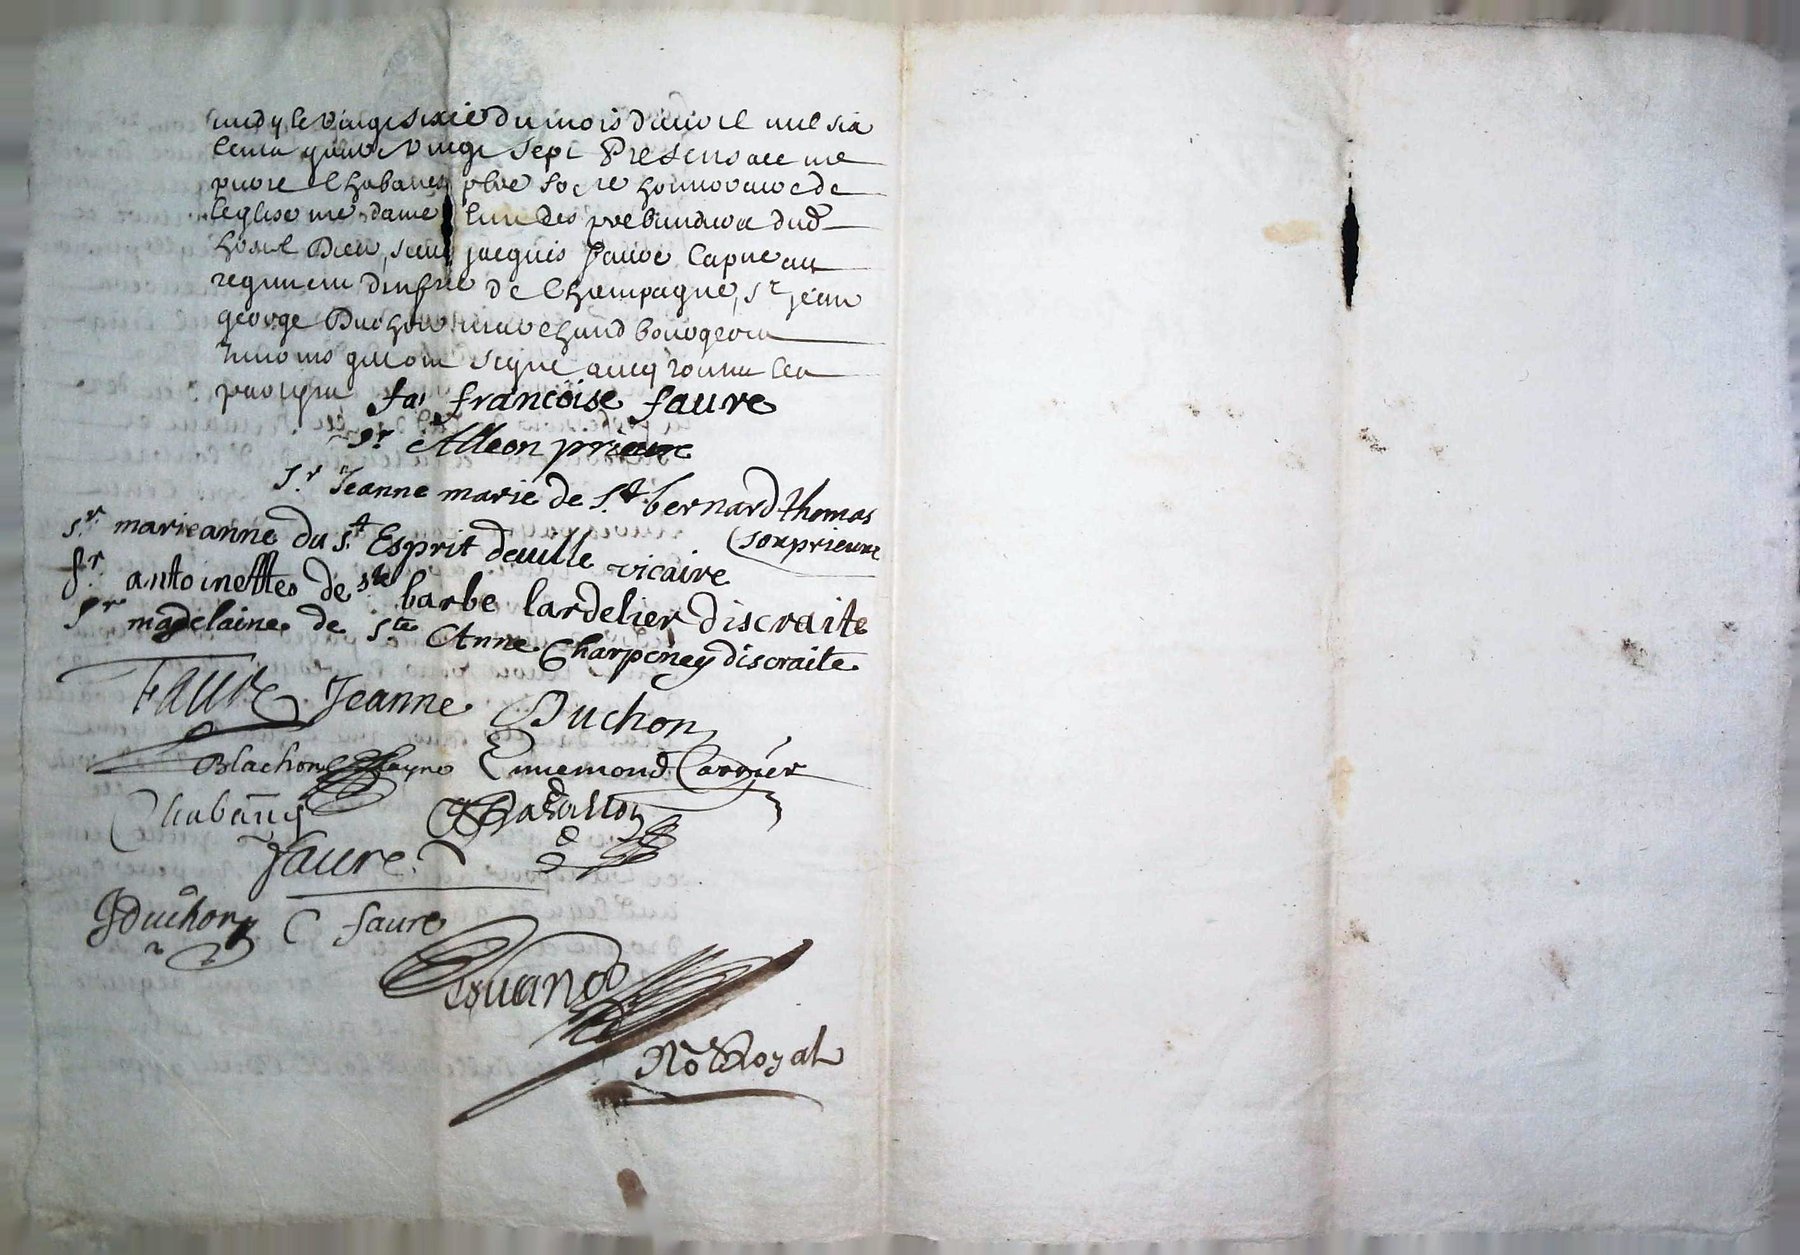 midy le vingt sixie du mois d'avril mil six
cents quatre vingt sept Presens a ce me
pierre Chabanes pbre socre honnoraire de
leglise nre dame lun des prebandiers dud
hostel Dieu, sieur jacques faure Capne au
regiment dinfrie de Champagne, sr jean
george Duchon marchand bourgeois
temoins qui ont signé avecq toutes les
parties
françoise faure
sr Alleon prieure
Sr Jeanne marie de St bernard thomas
souprieure
Sr marieanne du St Esprit deville vicaire
Sr antoinette de ste barbe lardelier discraite
Sr madelaine de Ste Anne Charpeney discraite
Faure Jeanne Duchon
Blachon Ennemond Carrier
Chabanes
faure
JDuchon C faure
Nore Royal